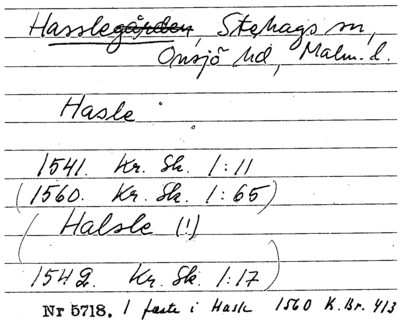 Hasslegården, Stehags sn,
Onsjö hd, Malm. l.
Hasle
1541. Kr. Sk. 1:11
(1560. Kr. Sk. 1:65)
(Halsle (!)
1542. Kr. Sk. 1:17)
Nr 5718. 1 fæste i Hasle 1560 K.Br. 413